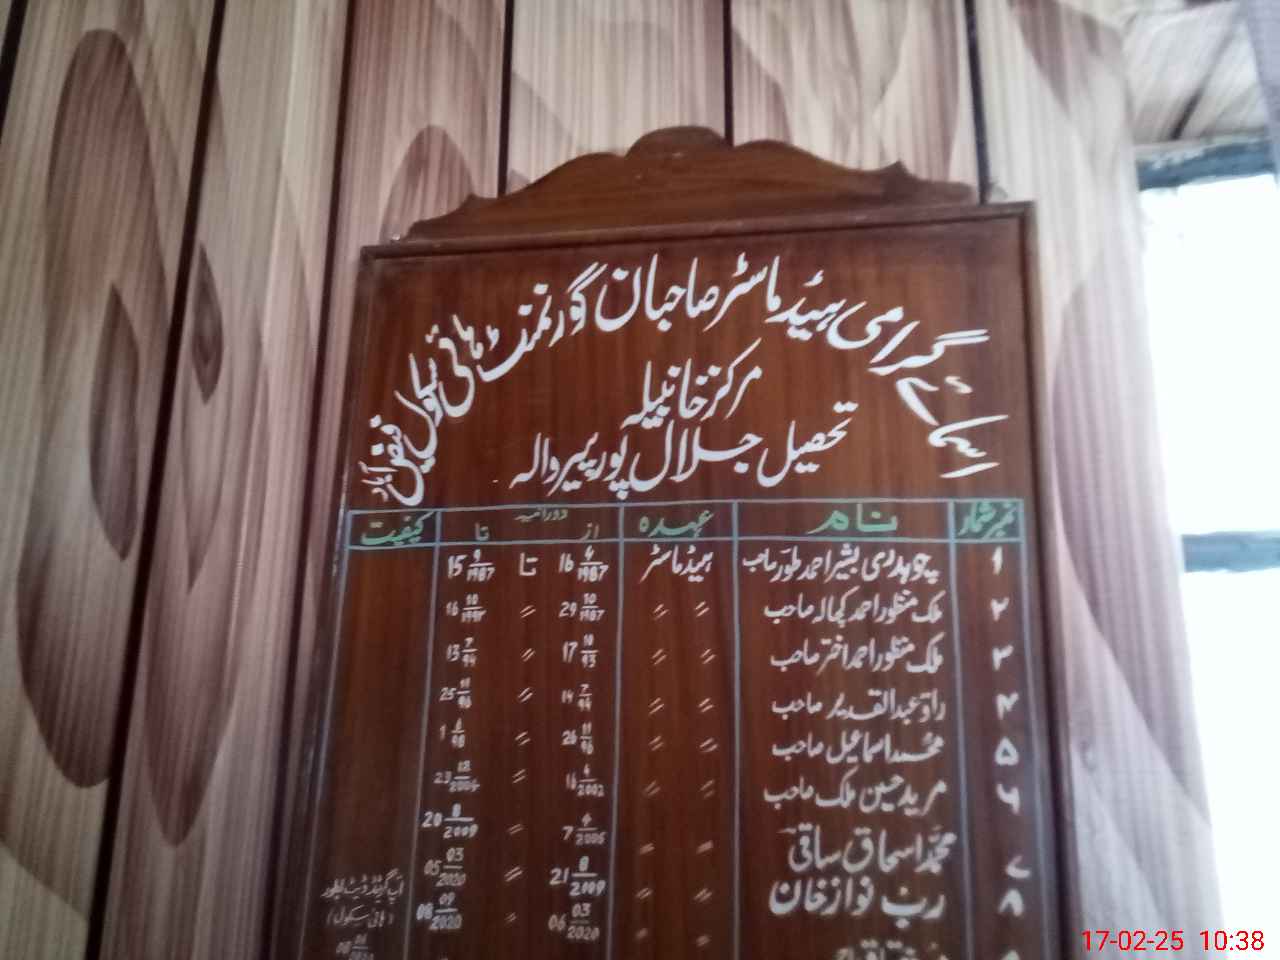 اسمائے گرامی ہیڈ ماسٹر صاحبان گورنمنٹ ہائی سکول فیض آباد
مرکز خانبیلہ
تحصیل جلال پور پیروالہ
نمبر شمار نام عہدہ دورانیہ کیفیت
از تا
۱ چوہدری بشیر احمد طور صاحب ہیڈ ماسٹر 16 4/1987 تا 15 9/1987
۲ ملک منظور احمد کہالہ صاحب 〃 〃 29 10/1987 〃 16 10/
۳ ملک منظور احمد اختر صاحب 〃 〃 17 10/93 〃 13 7/94
۴ راؤ عبدالقدیر صاحب 〃 〃 14 7/94 〃 25 11/96
۵ محمد اسماعیل صاحب 〃 〃 26 11/96 〃 1 6/98
۶ مرید حسین ملک صاحب 〃 〃 16 4/2002 〃 23 12/
۷ محمد اسحاق ساقی 〃 〃 7 4/ 〃 20 8/2009
۸ رب نواز خان 〃 〃 21 8/2009 〃 05 03/2020
06 03/2020 〃 08 09/2020 اپ گریڈ ڈیٹ بطور
(ہائی سکول)
17-02-25 10:38